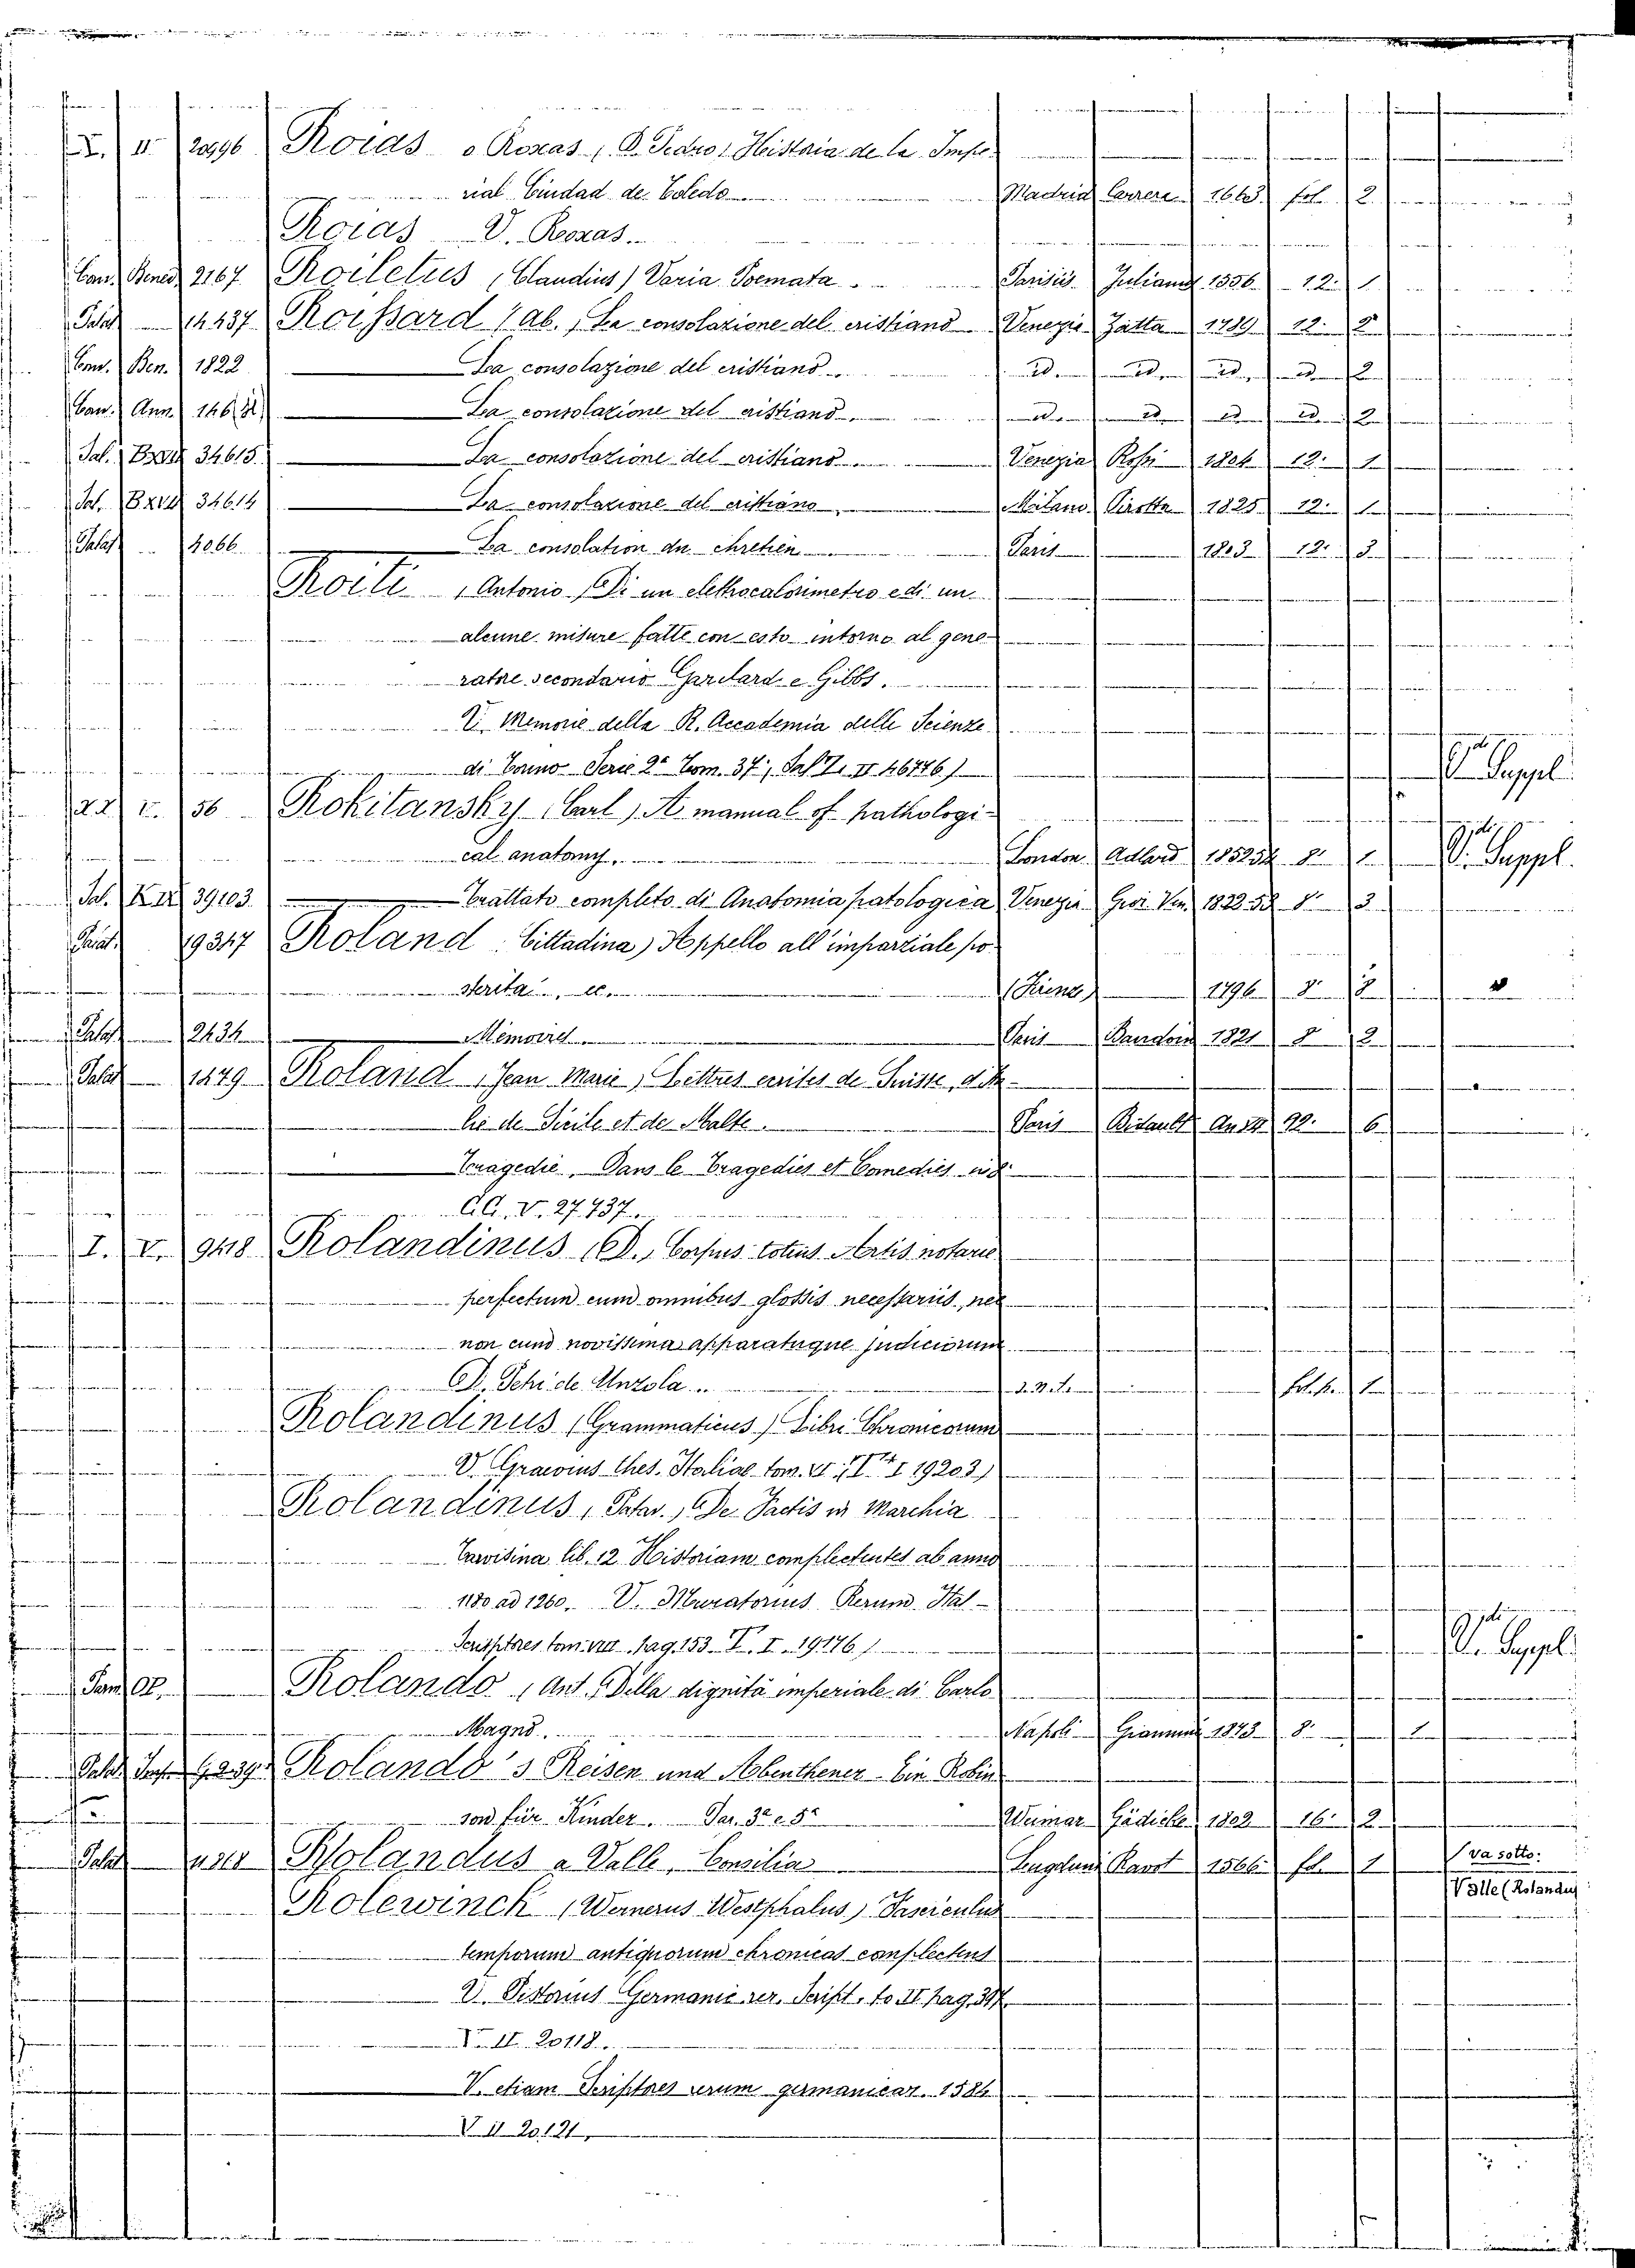 X. II 20996 Roias o Roxas (D. Pedro) Historia de la Impe-
rial Ciudad de Toledo Madrid Carrera 1663 fol. 2
Roias V. Roxas.
Can. Bened. 2167 Roiletus (Claudius) Varia Poemata. Parisiis Julianus 1556 12. 1
Palat 14437 Roissard (ab.) La consolazione del cristiano Venezia Zatta 1789 12. 2
Con. Ben. 1822 La consolazione del cristiano id. id. id. id. 2
Can. Ann. 146 La consolazione del cristiano id. id. id. id. 2
Sal. 34615 La consolazione del cristiano. Venezia Rossi 1804 12. 1
Sal. 34614 La consolazione del cristiano Milano Pirotta 1825 12. 1
Palat 4066 La consolation du chretien Paris 1803 12. 3
Roiti (Antonio) Di un elettrocalorimetro e di un
alcune misure fatte con esto intorno al gene-
ratore secondario Gaulard e Gibbs.
V. Memorie della R. Accademia delle Scienze
di Torino Serie 2a Tom. 37, Sal. II 46776) V. Suppl.
22 V. 56 Rokitansky (Carl) A manual of pathologi-
cal anatomy. London Adlard 185254 8. V. Suppl.
Sal. 39103 Trattato completo di Anatomia patologica Venezia 1822-52 8. 3
Palat. 19347 Roland (Cittadina) Appello all'imparziale po-
sterità, ec. (Firenze) 1796 8.
Palat 2434 Memoires Paris Baudoin 1821 8. 2
Palat 1479 Roland (Jean Marie) Lettres ecrites de Suisse, d'Ita-
lie de Sicile et de Malte. Paris Bidault 12. 6
Tragedie. Dans le Tragedies et Comedies
CC. V. 27.437.
I. V. 9418 Rolandinus (D.) Corpus totius Artis notarie
perfectum cum omnibus glossis necessariis, nec
non cum novissima apparatuque judiciorum
D. Petri de Unzola. 1
Rolandinus (Grammaticus) Libri Chronicorum
V. Graevius Thes. Italiae tom. VI. I 19203)
Rolandinus, Patav., De Factis in Marchia
Tarvisina lib. 12 Historiam complectentes ab anno
1180 ad 1260. V. Muratorius Rerum Ital-
Scriptores tom. VIII pag. 153 I. 19176) V. Suppl.
Rolando (Ant.) Della dignità imperiale di Carlo
Magno. Napoli Giannini 1873 8. 1
Palat Rolando's Reisen und Abentheuer. Ein Robin
son für Kinder. Par. 3a e 5a Weimar Gädicke 1802 16. 2
Palat Rolandus a Valle, Consilia Lugduni 1566 fol. 1 va sotto:
Valle (Rolandus
Rolewinck (Wernerus Westphalus) Fasciculus
temporum antiquorum chronicas complectens
V. Pistorius Germanic. rer. Script. to II pag. 397
V. II 20118.
V. etiam Scriptores rerum germanicar. 1584
V II 20121